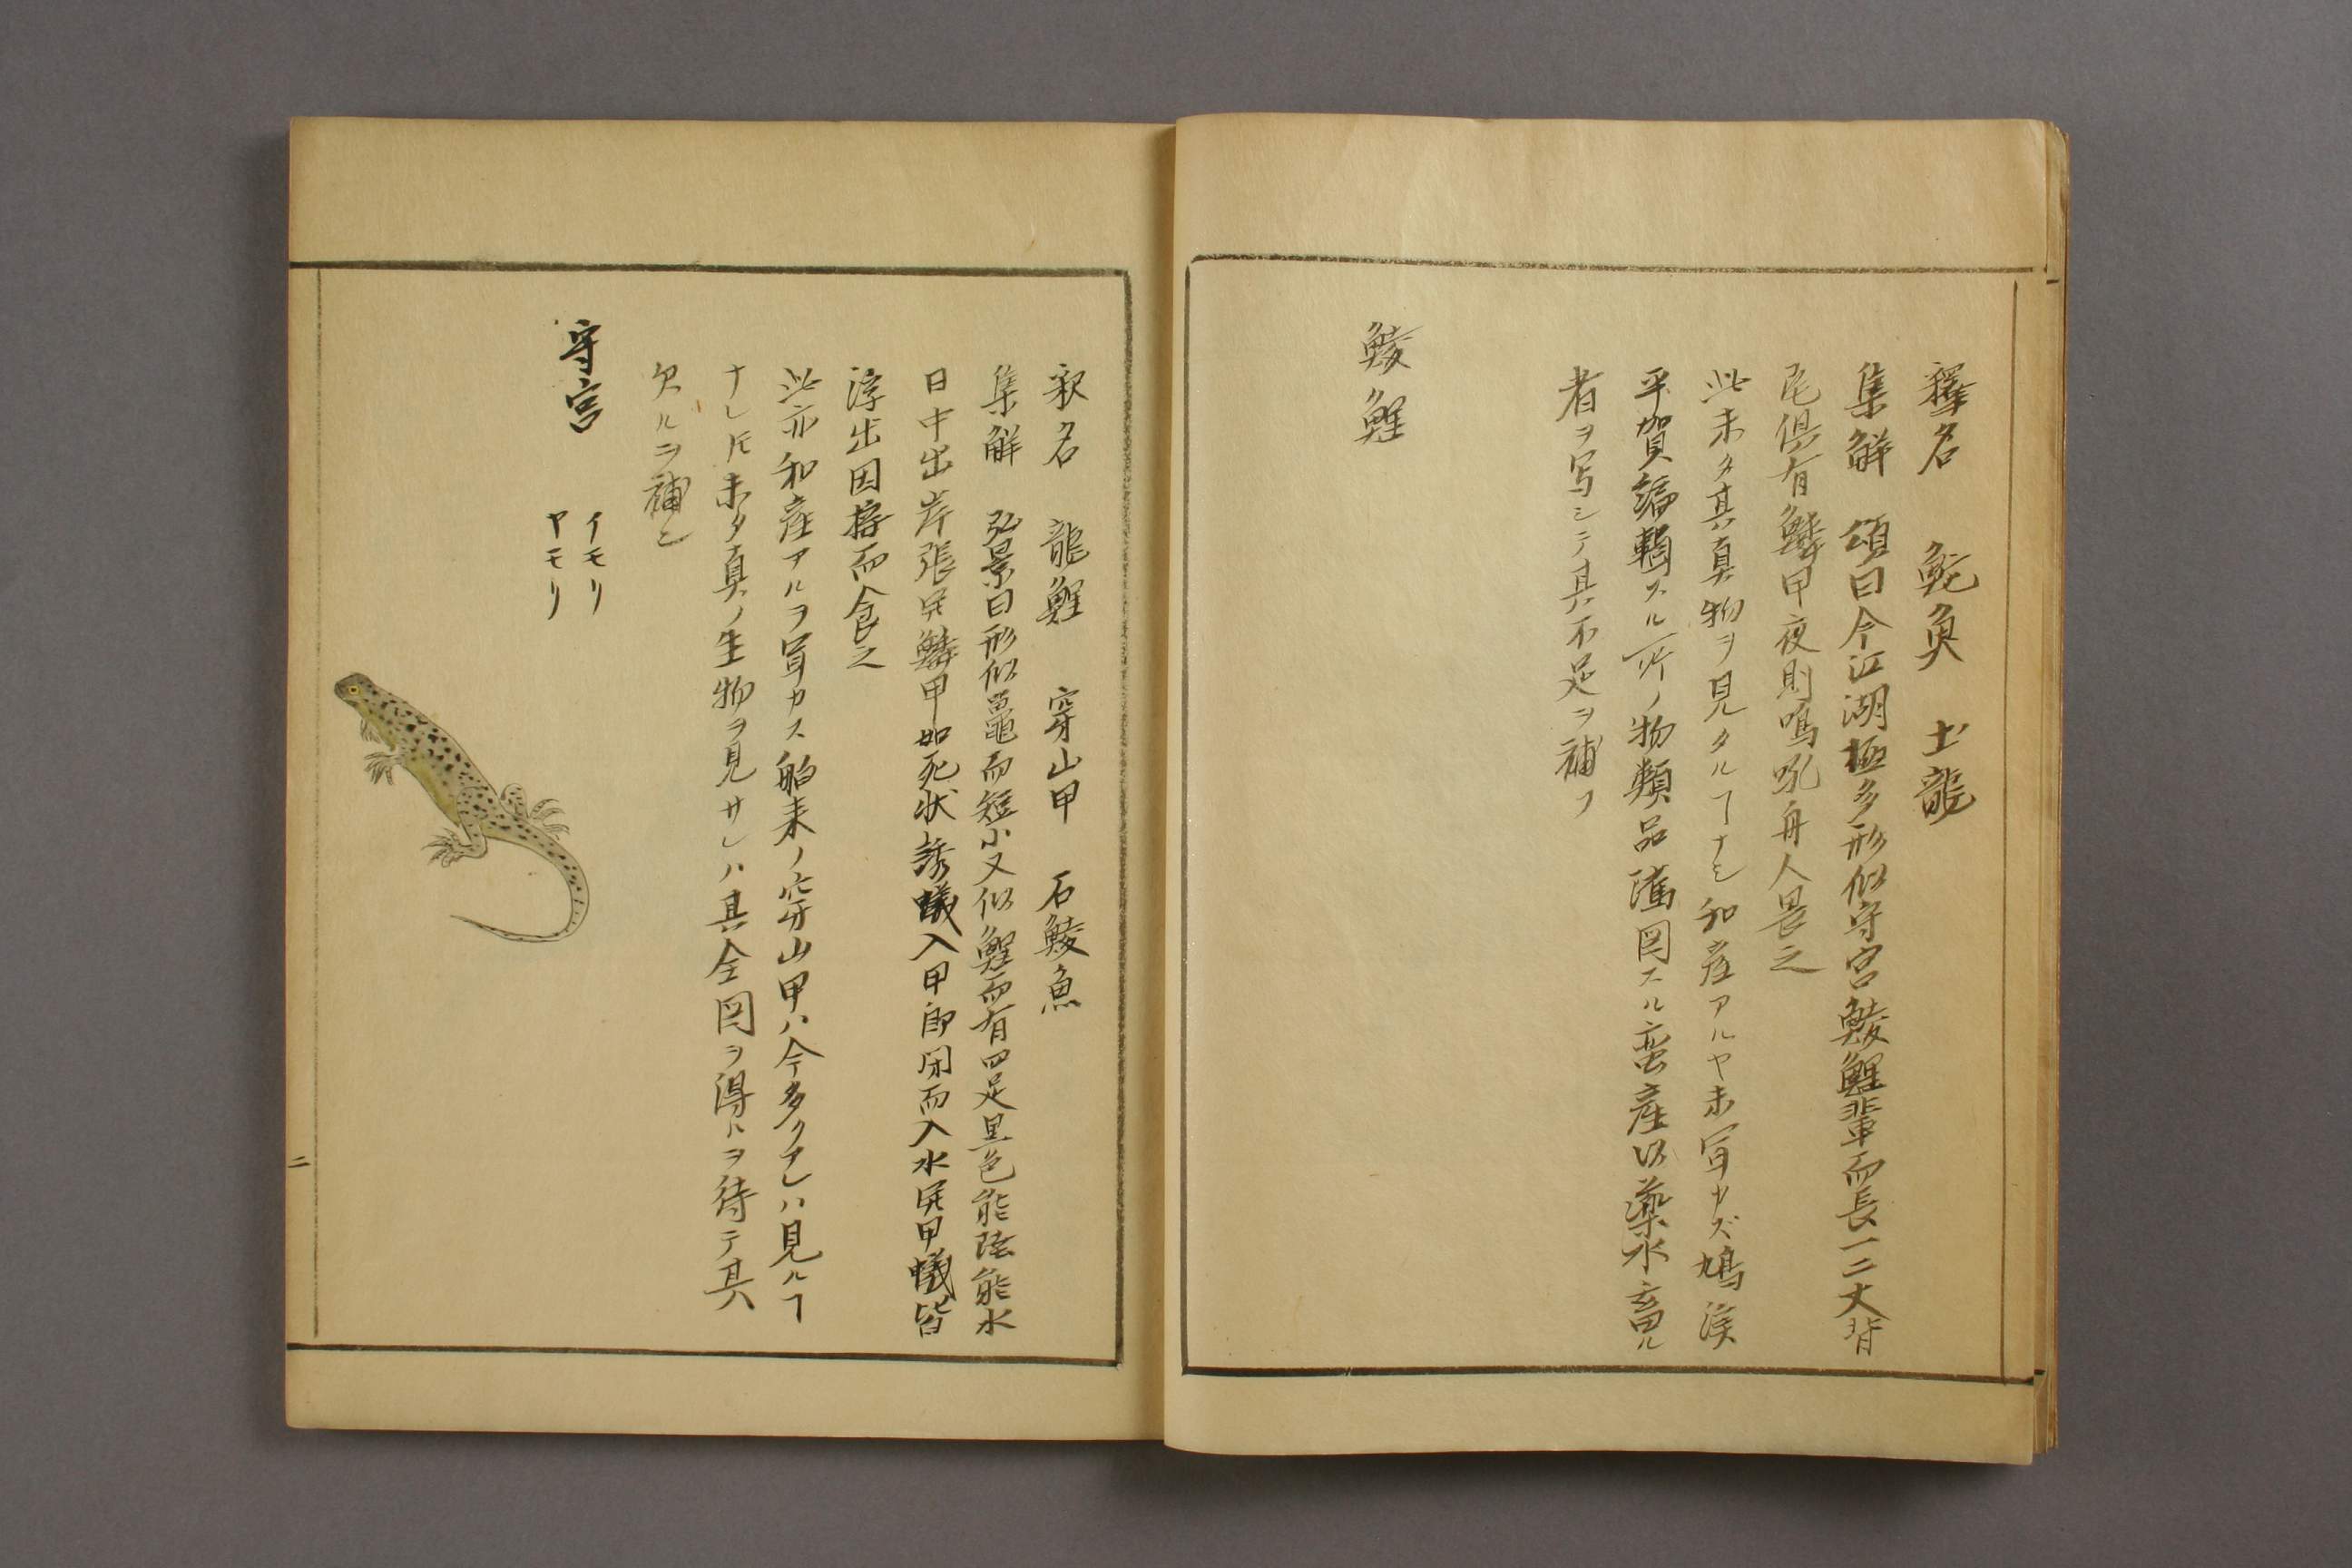 釋名 鮀魚 土龍
集解 頌曰今江湖極多形似守宮鯪鯉輩而長一二丈背
尾俱有鱗甲夜則鳴吼舟人畏之
此未タ其真物ヲ見タルヿナシ和産アルヤ未冝カズ鳩渓
平賀譌輯スル所ノ物類品隲図スル蛮産以薬水畜ル
者ヲ写シテ其不足ヲ補フ
鯪鯉
釈名 龍鯉 穿山甲 石鯪魚
集解 弘景曰形似鼉而短小又似鯉而有四足黒色能陸能水
日中出岸張開鱗甲如死状誘蟻入甲即閉而入水開甲蟻皆
浮出因接而食之
此亦和産アルヲ冝カス舶来ノ穿山甲ハ今多クアレハ見ルヿ
ナレ𪜈未タ真ノ生物ヲ見サレハ其全図ヲ得トヲ待テ其
欠ルヲ補シ
守宮 イモリ
ヤモリ
二